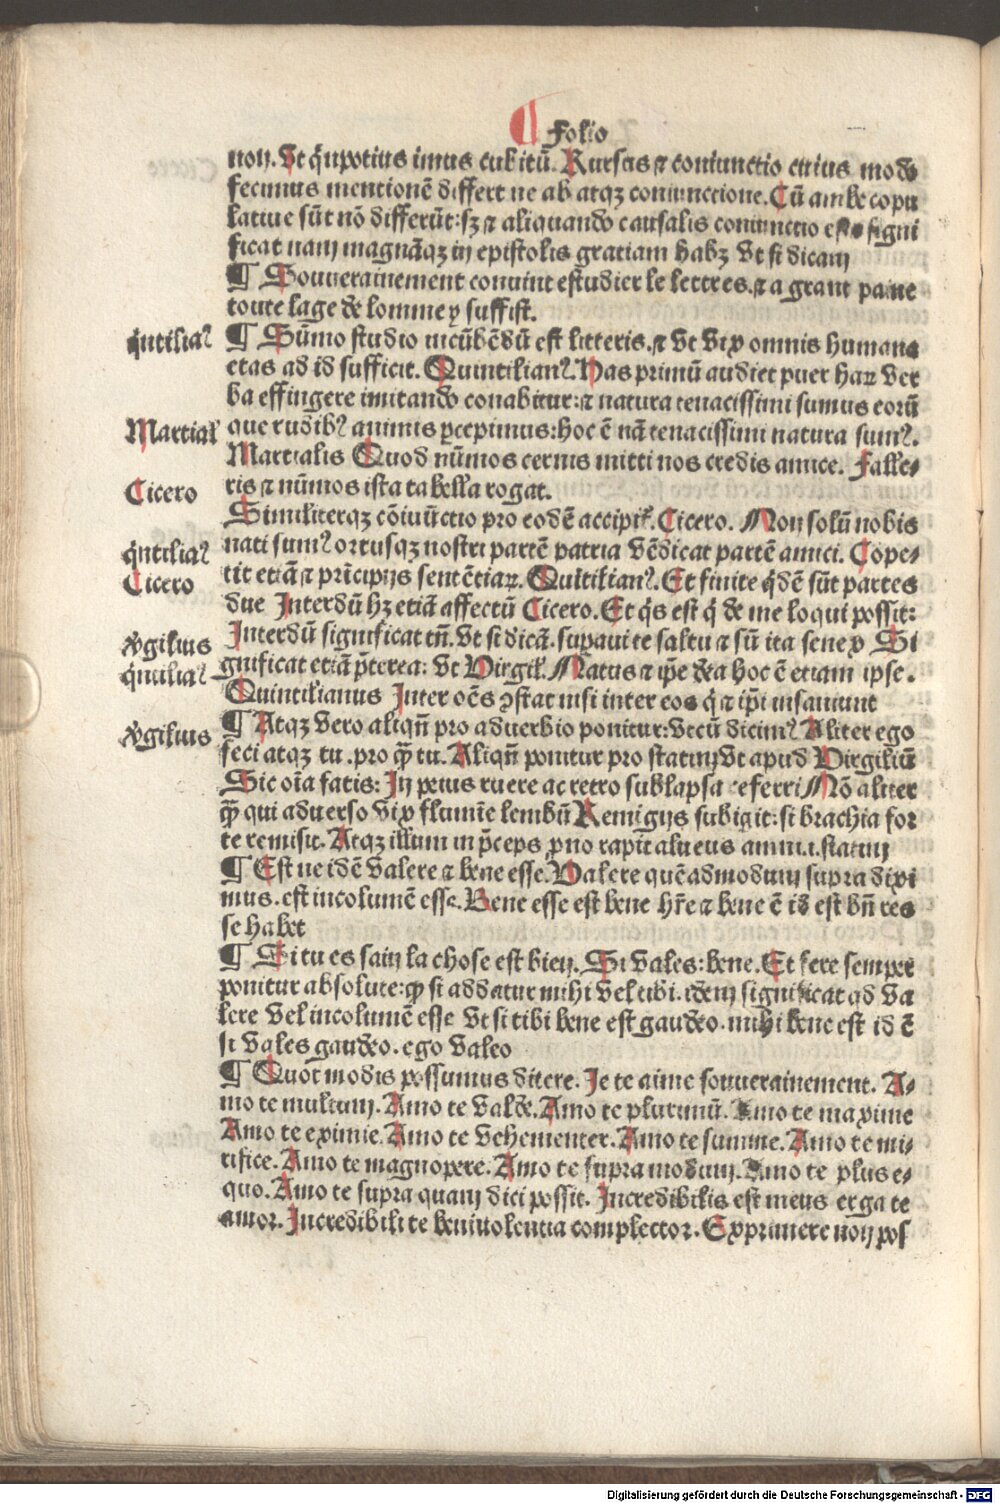 ¶ Folio
non. Vt q̄npotius imus cubitū. Rursus ⁊ coniunctio cuius modo
fecimus mentionē differt ne ab atqꝫ coniunctione. Cū ambe copu
latiue sūt nō differūt: sꝫ ⁊ aliquando causalis coniunctio est signi
ficat nam magnāqꝫ in epistolis gratiam habꝫ Vt si dicam
¶ Souuerainement conuint estudier le lettres. ⁊ a grant paine
toute lage de lomme y suffist.
q̄ntiliaꝰ
¶ Sūmo studio incūbēdū est litteris. ⁊ Vt Vix omnis humana
etas ad id sufficit. Quintilianꝰ. Has primū audiet puer haꝝ Ver
ba effingere imitando conabitur: ⁊ natura tenacissimi sumus eorū
Martial
que rudibꝰ animis ꝑcepimus: hoc ē nā tenacissimi natura sumꝰ.
Martialis Quod nūmos cernis mitti nos credis amice. Falle-
Cicero
ris ⁊ nūmos ista tabella rogat.
Similiterqꝫ cōiūctio pro eodē accipit̄. Cicero. Non solū nobis
q̄ntiliaꝰ
nati sumꝰ ortusqꝫ nostri partē patria Vēdicat partē amici. Cope-
Cicero
tit etiā ⁊ prīcipijs sentētiaꝝ. Quītilianꝰ. Et finite q̄dē sūt partes
due Interdū hꝫ etiā affectū Cicero. Et q̄s est q̄ de me loqui possit:
Interdū significat tn̄. Vt si dicā. supaui te saltu ⁊ sū ita senex Si
v̄gilius
gnificat etiā p̄terea: Vt Virgil. Natus ⁊ ip̄e dea hoc ē etiam ipse.
q̄ntiliaꝰ
Quintilianus Inter oēs ꝯstat nisi inter eos q̄ ⁊ ip̄i insaniunt
¶ Atqꝫ Vero aliqn̄ pro aduerbio ponitur: Vt cū dicimꝰ Aliter ego
v̄gilius
feci atqꝫ tu. pro q̄ꝫ tu. Aliqn̄ ponitur pro statim Vt apud Virgiliū
Sic oīa fatis: In peius ruere ac retro sublapsa referri Nō aliter
q̄ꝫ qui aduerso Vix flumīe lembū Remigijs subigit: si brachia for
te remisit. Atqꝫ illum in p̄ceps prono rapit alueus amni .i. statim
¶ Est ne idē Valere ⁊ bene esse. Valere quēadmodum supra dixi
mus. est incolumē esse. Bene esse est bene hr̄e ⁊ bene ē id est bn̄ res
se habet
¶ Si tu es sain la chose est bien. Si Vales: bene. Et fere semper
ponitur absolute: ꝙ si addatur mihi Vel tibi. idem significat qd Va
lere Vel incolumē esse Vt si tibi bene est gaudeo. mihi bene est id ē
si Vales gaudeo. ego Valeo
¶ Quot modis possumus dicere. Je te aime souuerainement. A-
mo te multum. Amo te Valde. Amo te plurimū. Amo te maxime
Amo te eximie. Amo te Vehementer. Amo te summe. Amo te mi-
rifice. Amo te magnopere. Amo te supra modum. Amo te plus e-
quo. Amo te supra quam dici possit. Incredibilis est meus erga te
amor. Incredibili te beniuolentia complector. Exprimere non pos
Digitalisierung gefördert durch die Deutsche Forschungsgemeinschaft - DFG